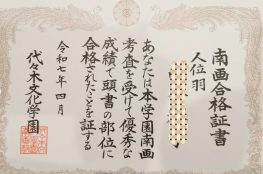 南画合格証書
人位 羽
あなたは本学園南画
考査を受けて優秀な
成績で頭書の部位に
合格されたことを証する
令和七年 四月
代々木文化学園